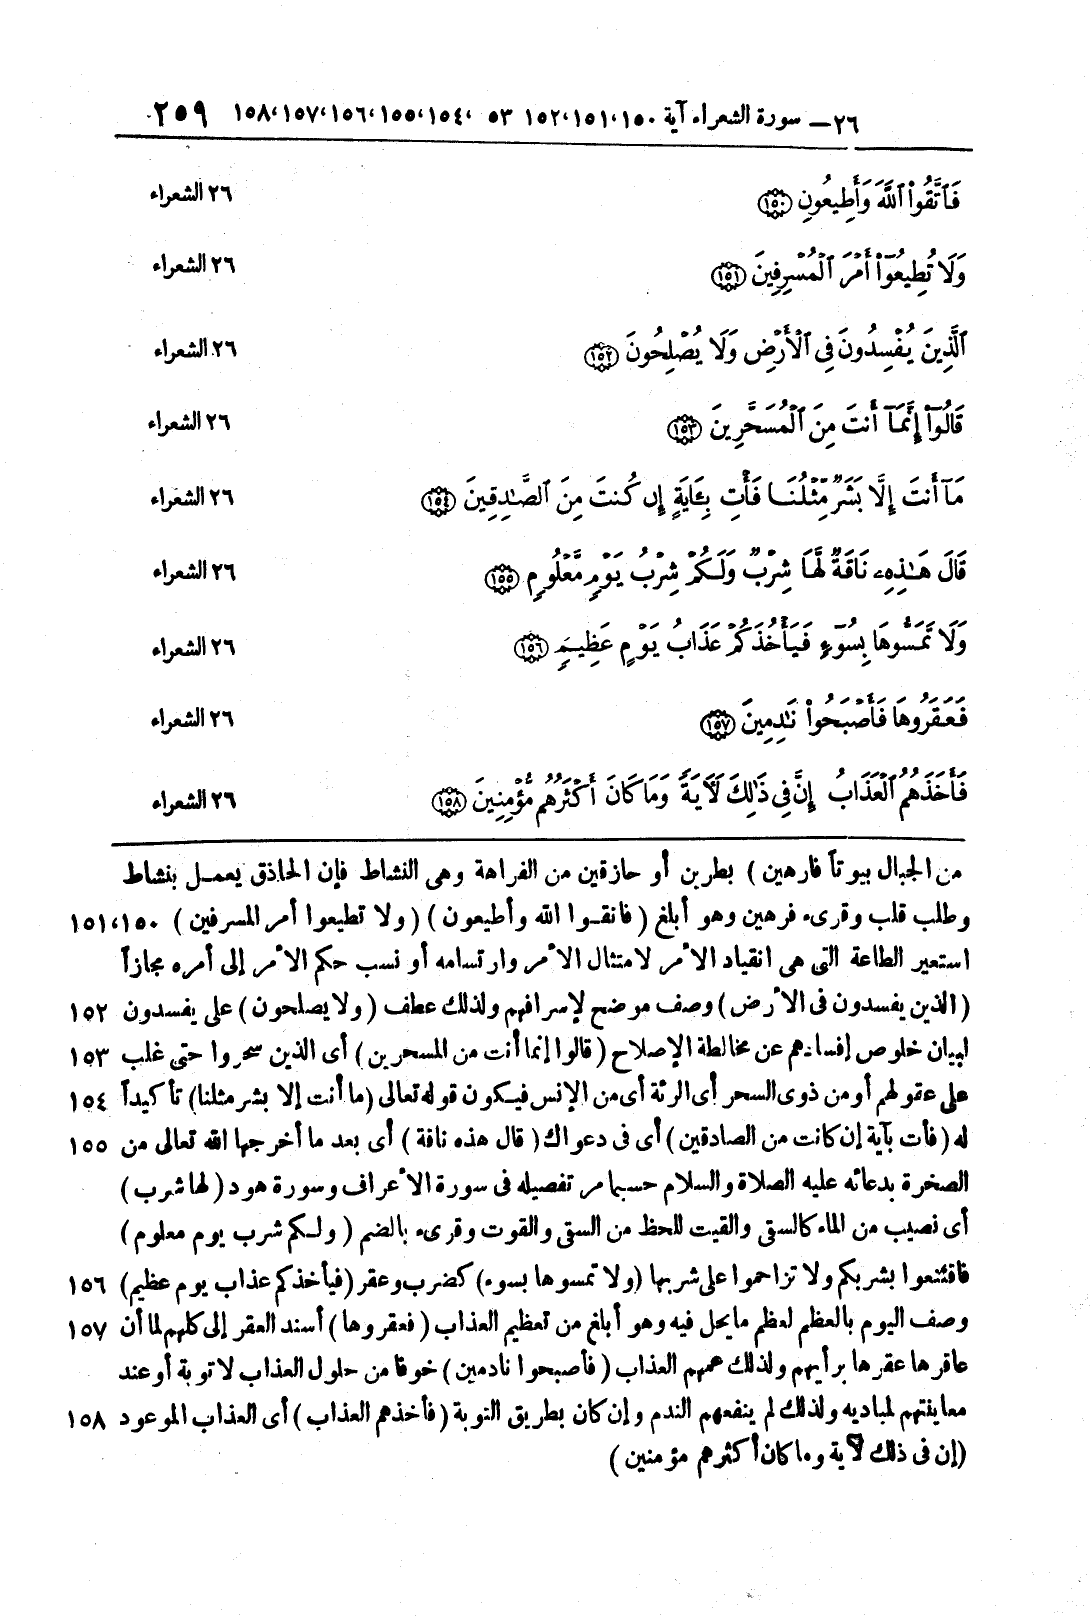 ٢٦ — سورة الشعراء آية ١٥٠،١٥١،١٥٢ ٥٣ ،١٥٤،١٥٥،١٥٦،١٥٧،١٥٨ ٢٥٩
فَٱتَّقُوا۟ ٱللَّهَ وَأَطِيعُونِ ١٥٠ ٢٦ الشعراء
وَلَا تُطِيعُوٓا۟ أَمْرَ ٱلْمُسْرِفِينَ ١٥١ ٢٦ الشعراء
ٱلَّذِينَ يُفْسِدُونَ فِى ٱلْأَرْضِ وَلَا يُصْلِحُونَ ١٥٢ ٢٦ الشعراء
قَالُوٓا۟ إِنَّمَآ أَنتَ مِنَ ٱلْمُسَحَّرِينَ ١٥٣ ٢٦ الشعراء
مَآ أَنتَ إِلَّا بَشَرٌ مِّثْلُنَا فَأْتِ بِـَٔايَةٍ إِن كُنتَ مِنَ ٱلصَّـٰدِقِينَ ١٥٤ ٢٦ الشعراء
قَالَ هَـٰذِهِۦ نَاقَةٌ لَّهَا شِرْبٌ وَلَكُمْ شِرْبُ يَوْمٍ مَّعْلُومٍ ١٥٥ ٢٦ الشعراء
وَلَا تَمَسُّوهَا بِسُوٓءٍ فَيَأْخُذَكُمْ عَذَابُ يَوْمٍ عَظِيمٍ ١٥٦ ٢٦ الشعراء
فَعَقَرُوهَا فَأَصْبَحُوا۟ نَـٰدِمِينَ ١٥٧ ٢٦ الشعراء
فَأَخَذَهُمُ ٱلْعَذَابُ إِنَّ فِى ذَٰلِكَ لَـَٔايَةً وَمَا كَانَ أَكْثَرُهُم مُّؤْمِنِينَ ١٥٨ ٢٦ الشعراء
من الجبال بيوتاً فارهين ) بطرين أو حازقين من الفراهة وهى النشاط فإن الحاذق يعمل بنشاط
وطلب قلب وقرىء فرهين وهو أبلغ ( فاتقوا الله وأطيعون ) ( ولا تطيعوا أمر المسرفين ) ١٥١،١٥٠
استعير الطاعة التى هى انقياد الأمر لامتثال الأمر وارتسامه أو نسب حكم الأمر إلى أمره مجازاً
( الذين يفسدون فى الأرض ) وصف موضح لإسرافهم ولذلك عطف ( ولا يصلحون ) على يفسدون ١٥٢
لبيان خلوص إفسادهم عن مخالطة الإصلاح ( قالوا إنما أنت من المسحرين ) أى الذين سحروا حتى غلب ١٥٣
على عقولهم أو من ذوى السحر أى الرئة أى من الإنس فيكون قوله تعالى ( ما أنت إلا بشر مثلنا ) تأكيداً ١٥٤
له ( فأت بآية إن كانت من الصادقين ) أى فى دعواك ( قال هذه ناقة ) أى بعد ما أخرجها الله تعالى من ١٥٥
الصخرة بدعائه عليه الصلاة والسلام حسبما مر تفصيله فى سورة الأعراف وسورة هود ( لها شرب )
أى نصيب من الماء كالسقى والقيت للحظ من السقى والقوت وقرىء بالضم ( ولكم شرب يوم معلوم )
فاقتنعوا بشربكم ولا تزاحموا على شربها ( ولا تمسوها بسوء ) كضرب وعقر ( فيأخذكم عذاب يوم عظيم ) ١٥٦
وصف اليوم بالعظم لعظم ما يحل فيه وهو أبلغ من تعظيم العذاب ( فعقروها ) أسند العقر إلى كلهم لما أن ١٥٧
عاقرها عقرها برأيهم ولذلك عمهم العذاب ( فأصبحوا نادمين ) خوفا من حلول العذاب لا توبة أو عند
معاينتهم لمباديه ولذلك لم ينفعهم الندم وإن كان بطريق التوبة ( فأخذهم العذاب ) أى العذاب الموعود ١٥٨
( إن فى ذلك لآية وما كان أكثرهم مؤمنين )